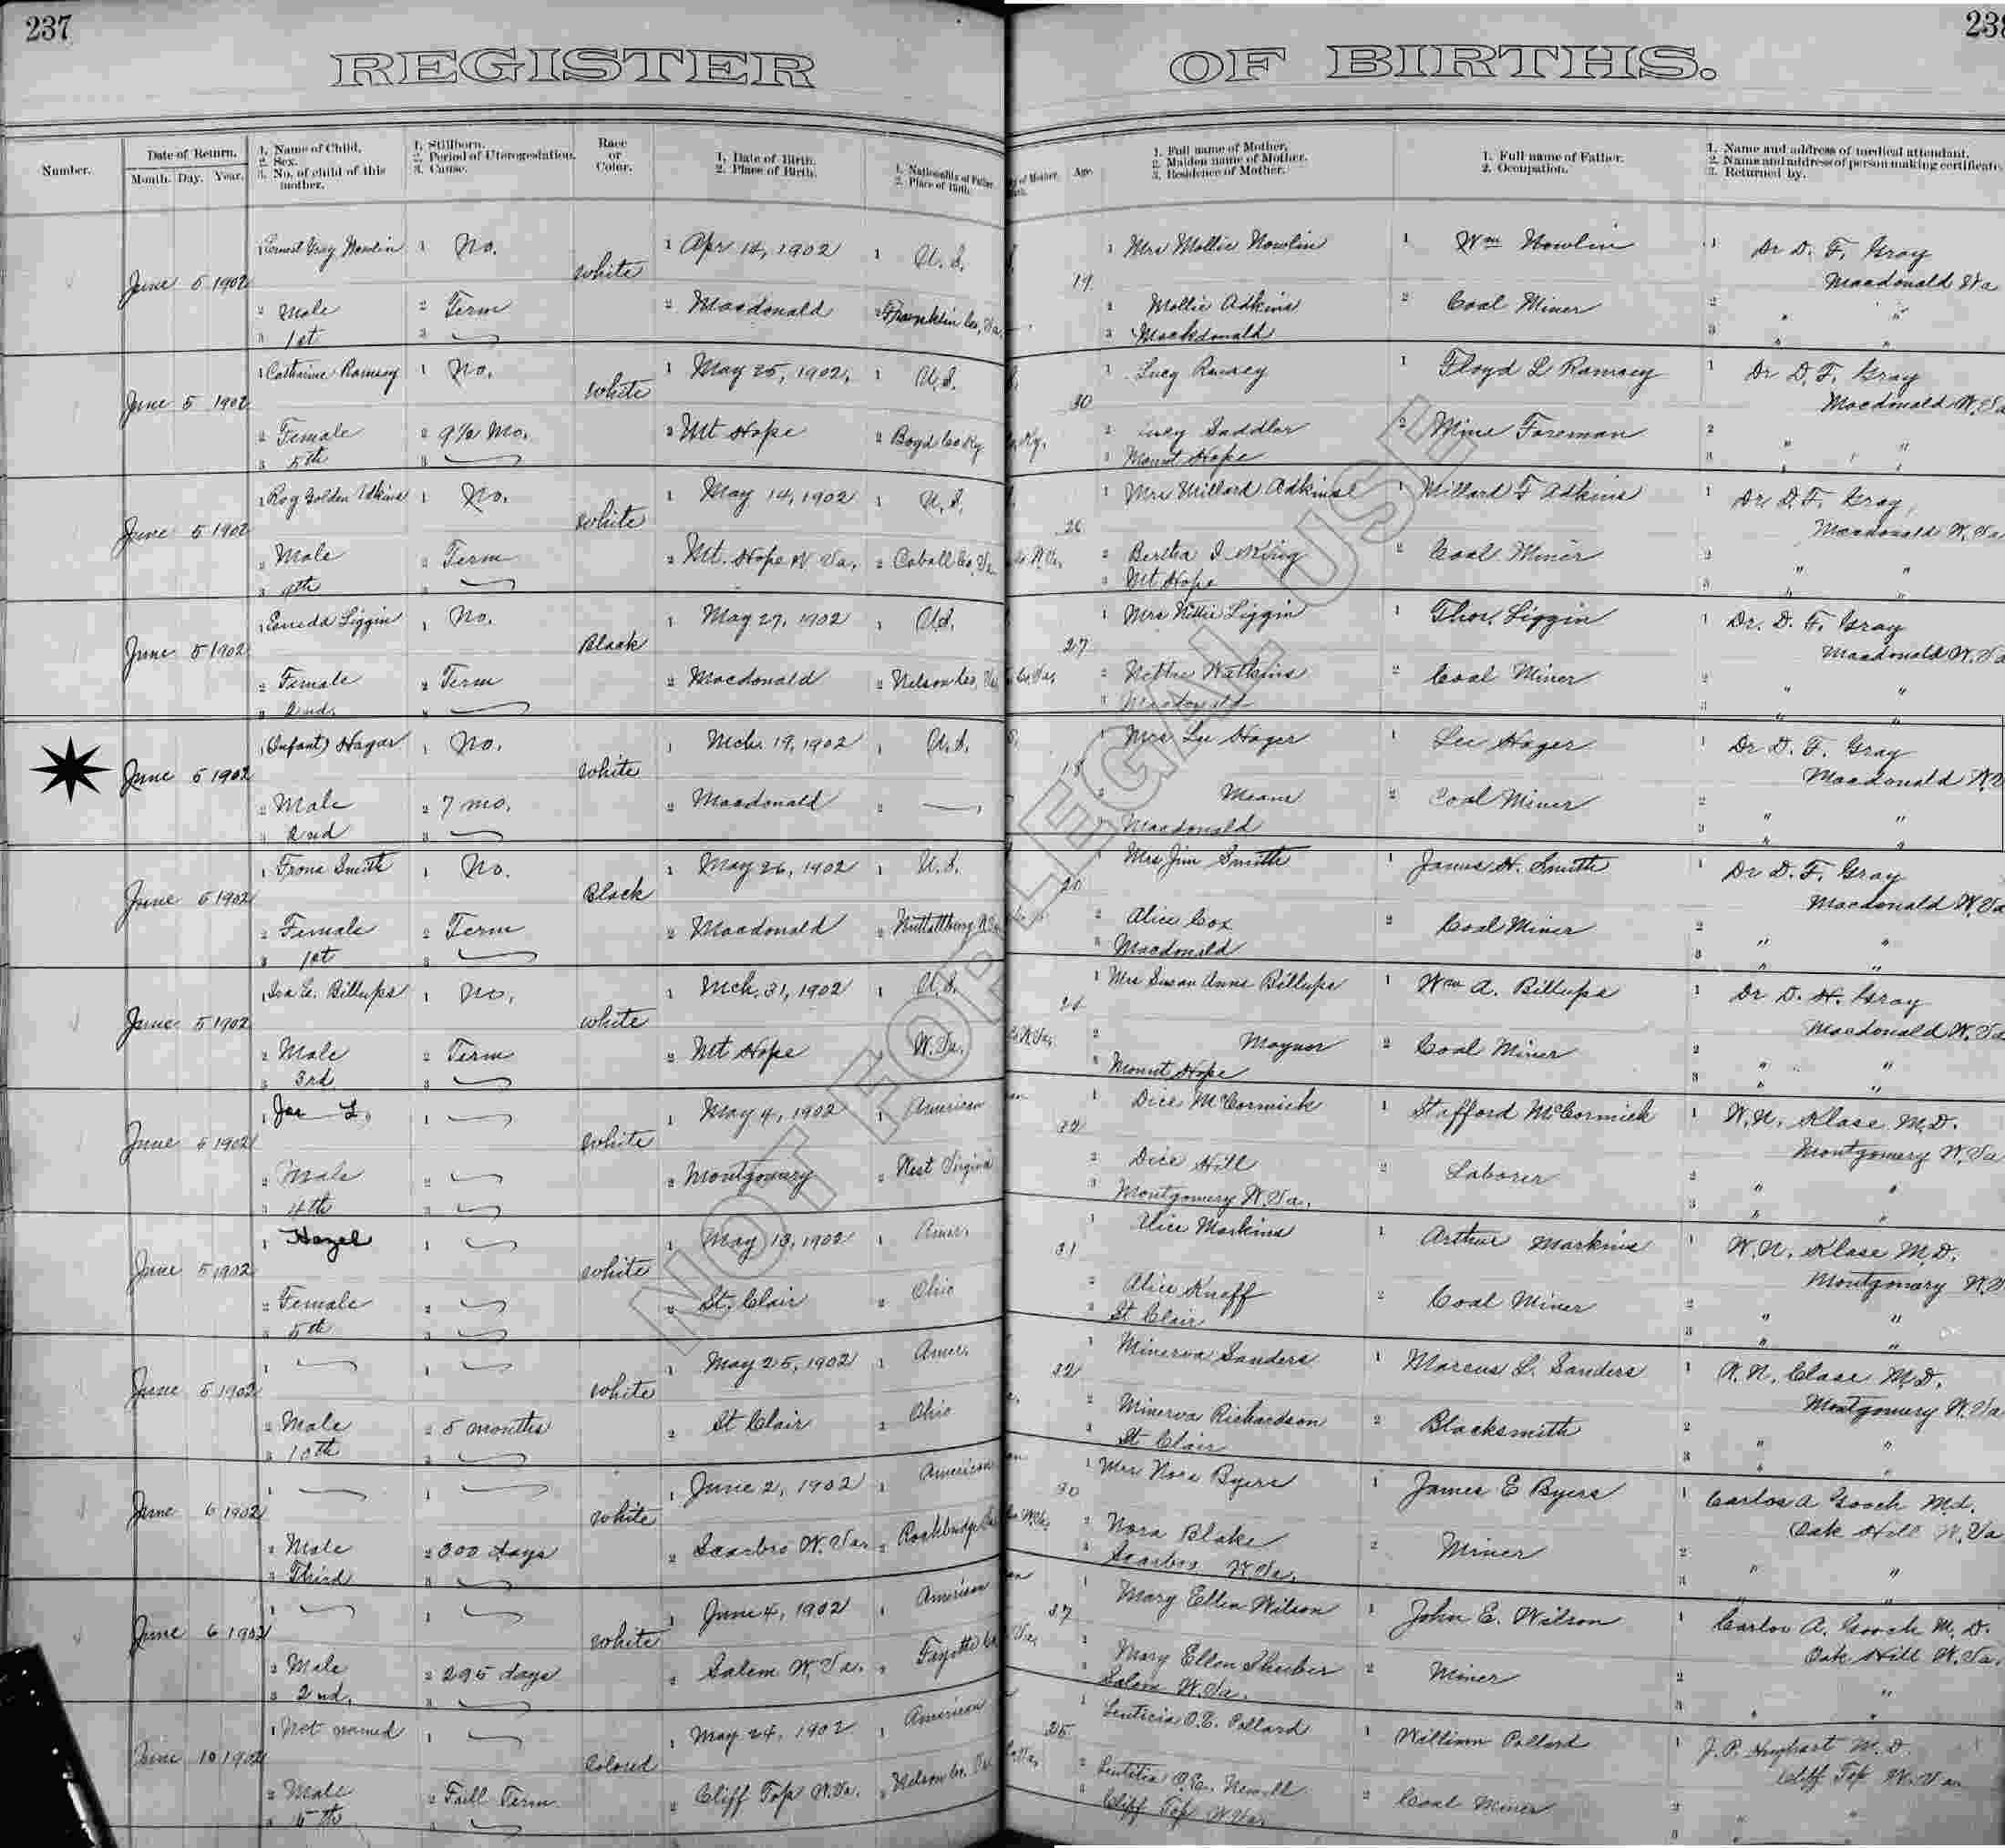 237
REGISTER OF BIRTHS.
Number.
Date of Return.
Month. Day. Year.
1. Name of Child.
2. Sex.
3. No. of child of this mother.
1. Stillborn.
2. Period of Uterogestation.
3. Cause.
Race or Color.
1. Date of Birth.
2. Place of Birth.
1. Nationality of Father
2. Place of Birth.
Age.
1. Full name of Mother.
2. Maiden name of Mother.
3. Residence of Mother.
1. Full name of Father.
2. Occupation.
1. Name and address of medical attendant.
2. Name and address of person making certificate.
3. Returned by.
June 5 1902 1 Ernest Gray Nowlin 1 No. White 1 Apr 14, 1902 1 U.S. 19 1 Mrs Mollie Nowlin 1 Wm Nowlin 1 Dr D. F. Gray
Macdonald
2 Male 2 Term 2 Macdonald 2 Franklin Co, Va 2 Mollie Adkins 2 Coal Miner 2 " "
3 1st 3 3 Mackdonald 3 " "
June 5 1902 1 Catherine Ramsey 1 No. White 1 May 25, 1902, 1 U.S. 30 1 Lucy Ramsey 1 Floyd L Ramsey 1 Dr D. F. Gray
Macdonald W.Va
2 Female 2 9½ Mo. 2 Mt Hope 2 Boyd Co Ky 2 Saddler 2 Mine Foreman 2 " "
3 5th 3 3 Mount Hope 3 " "
June 5 1902 1 Roy Golden Adkins 1 No. White 1 May 14, 1902 1 U.S. 26 1 Mrs Millard Adkins 1 Millard F Adkins 1 Dr. D. F. Gray,
Macdonald W.Va
2 Male 2 Term 2 Mt. Hope W Va. 2 Cabell Co, Va 2 Bertha 2 Coal Miner 2 " "
3 3 3 Mt Hope 3 " "
June 5 1902 1 Liggin 1 No. Black 1 May 27, 1902 1 U.S. 27 1 Mrs Nettie Liggin 1 Thos. Liggin 1 Dr. D. F. Gray
Macdonald W.Va
2 Female 2 Term 2 Macdonald 2 Nelson Co, Va 2 Nettie Watkins 2 Coal Miner 2 " "
3 2nd. 3 3 Macdonald 3 " "
June 5 1902 1 (Infant) Hagar 1 No. White 1 Mch. 19, 1902 1 U.S. 18 1 Mrs Lee Hager 1 Lee Hager 1 Dr D. F. Gray
Macdonald
2 Male 2 7 mo. 2 Macdonald 2 — 2 Means 2 Coal Miner 2 " "
3 2nd 3 3 Macdonald 3 " "
June 5 1902 1 Frona Smith 1 No. Black 1 May 26, 1902 1 U.S. 20 1 Mrs Jim Smith 1 James H. Smith 1 Dr D. F. Gray
Macdonald W.Va
2 Female 2 Term 2 Macdonald 2 Nuttallburg 2 Alice Cox 2 Coal Miner 2 " "
3 1st 3 3 Macdonald 3 " "
June 5 1902 1 Billups 1 No. White 1 Mch. 31, 1902 1 U.S. 1 Mrs Susan Anna Billups 1 Wm A. Billups 1 Dr D. H. Gray
Macdonald W.Va
2 Male 2 Term 2 Mt Hope W.Va. 2 2 Coal Miner 2 " "
3 3rd 3 3 Mount Hope 3 " "
June 5 1902 1 1 White 1 May 4, 1902 1 American 1 Dice McCormick 1 Stafford McCormick 1 W.N. Klase M.D.
Montgomery W.Va
2 Male 2 2 Montgomery 2 West Virginia 2 Dice Hill 2 Laborer 2 " "
3 4th 3 3 Montgomery W.Va. 3 " "
June 5 1902 1 Hazel 1 White 1 May 13, 1902 1 Amer. 31 1 Markins 1 Arthur Markins 1 W.N. Klase M.D.
Montgomery
2 Female 2 2 St. Clair 2 Ohio 2 Alice Knaff 2 Coal Miner 2 " "
3 5th 3 3 St Clair 3 " "
June 5 1902 1 1 White 1 May 25, 1902 1 Amer. 32 1 Minerva Sanders 1 Marcus L. Sanders 1 Clase M.D.
Montgomery W.Va
2 Male 2 5 months 2 St Clair 2 Ohio 2 Minerva Richardson 2 Blacksmith 2 " "
3 10th 3 3 St Clair 3 " "
June 6 1902 1 1 White 1 June 2, 1902 1 American 30 1 Mrs Nora Byers 1 James E Byers 1 Carlos A Gooch M.d.
Oak Hill W.Va
2 Male 2 300 days 2 Scarbro W.Va. 2 Rockbridge 2 Nora Blake 2 Miner 2 " "
3 Third 3 3 Scarbro W.Va. 3 " "
June 6 1902 1 1 White 1 June 4, 1902 1 American 37 1 Mary Ellen Wilson 1 John E. Wilson 1 Carlos A. Gooch M.D.
Oak Hill W.Va.
2 Male 2 295 days 2 Salem W.Va. 2 Fayette Co 2 Mary Ellen 2 Miner 2 "
3 2nd. 3 3 Salem W.Va. 3 " "
June 10 1902 1 Not named 1 Colored 1 May 24, 1902 1 American 25 1 Pollard 1 William Pollard 1 J. P. M.D.
Cliff Top W.Va
2 Male 2 Full Term 2 Cliff Top W.Va. 2 Nelson Co. Va 2 2 Coal Miner 2 " "
3 5th 3 3 Cliff Top W.Va. 3
NOT FOR LEGAL USE